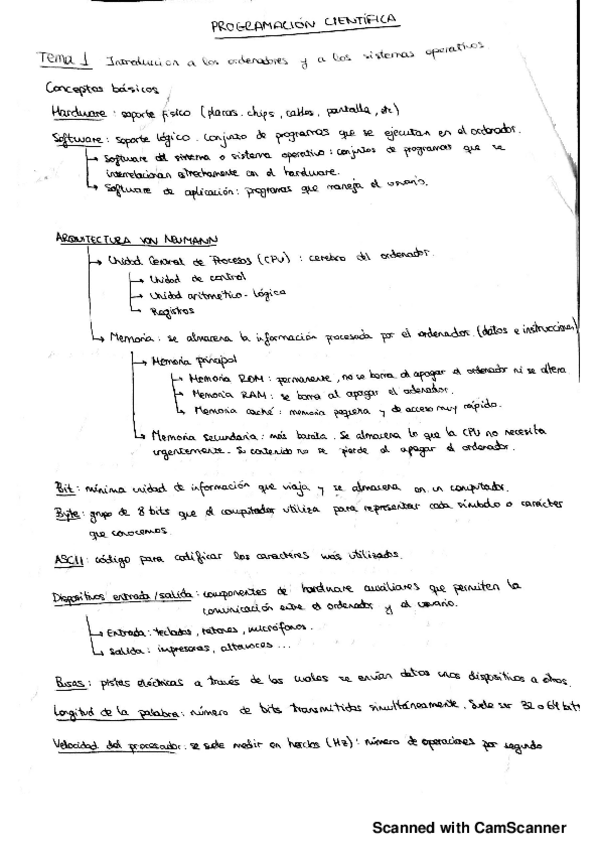 PROGRAMACIÓN CIENTÍFICA
Tema 1 Introducción a los ordenadores y a los sistemas operativos
Conceptos básicos
Hardware: soporte físico (placas, chips, cables, pantalla, etc)
Software: soporte lógico. Conjunto de programas que se ejecutan en el ordenador.
→ Software del sistema o sistema operativo: conjuntos de programas que se
interrelacionan estrechamente con el hardware.
→ Software de aplicación: programas que maneja el usuario.
ARQUITECTURA VON NEUMANN
→ Unidad Central de Procesos (CPU): cerebro del ordenador.
→ Unidad de control
→ Unidad aritmético-lógica
→ Registros
→ Memoria: se almacena la información procesada por el ordenador. (datos e instrucciones)
→ Memoria principal
→ Memoria ROM: permanente, no se borra al apagar el ordenador ni se altera
→ Memoria RAM: se borra al apagar el ordenador.
→ Memoria caché: memoria pequeña y de acceso muy rápido.
→ Memoria secundaria: más barata. Se almacena lo que la CPU no necesita
urgentemente. Su contenido no se pierde al apagar el ordenador.
Bit: mínima unidad de información que viaja y se almacena en un computador.
Byte: grupo de 8 bits que el computador utiliza para representar cada símbolo o carácter
que conocemos.
ASCII: código para codificar los caracteres más utilizados.
Dispositivos entrada/salida: componentes de hardware auxiliares que permiten la
comunicación entre el ordenador y el usuario.
→ Entrada: teclados, ratones, micrófonos.
→ Salida: impresoras, altavoces...
Buses: pistas eléctricas a través de las cuales se envían datos unos dispositivos a otros.
Longitud de la palabra: número de bits transmitidos simultáneamente. Suele ser 32 o 64 bits
Velocidad del procesador: se suele medir en hercios (Hz): número de operaciones por segundo
Scanned with CamScanner